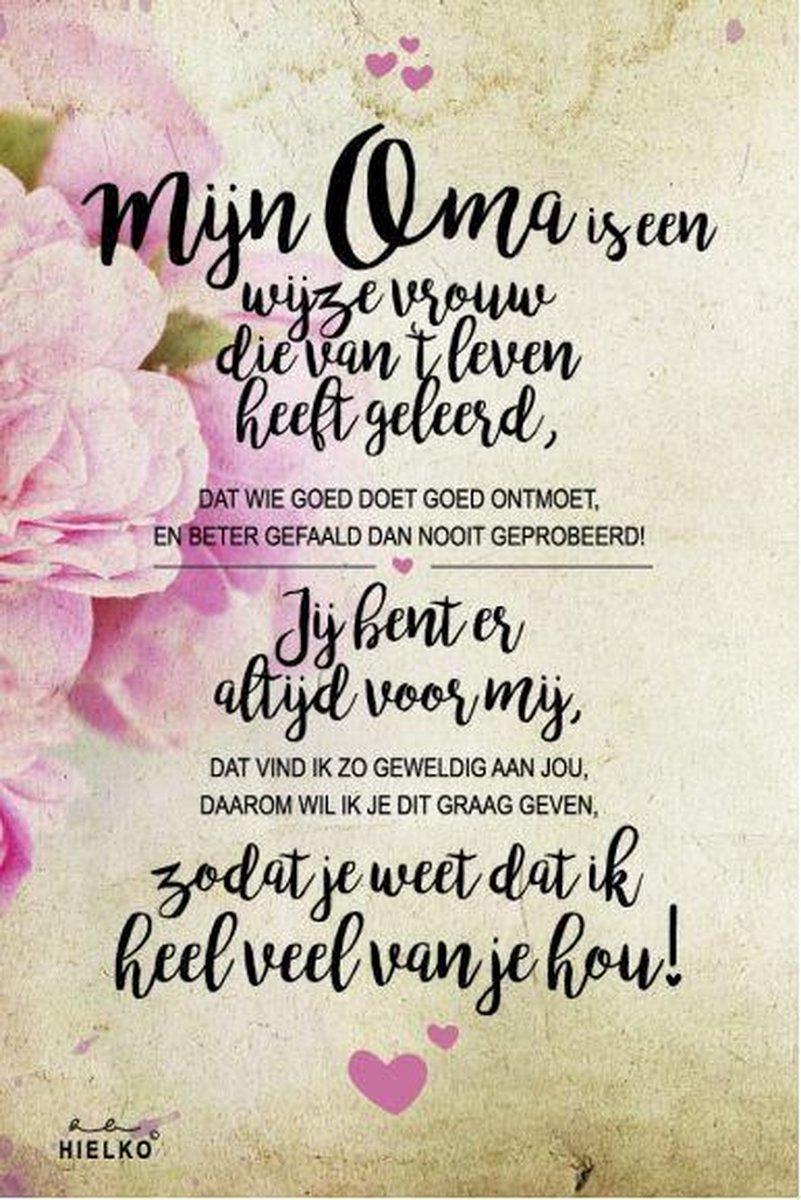 Mijn Oma is een
wijze vrouw
die van 't leven
heeft geleerd,
DAT WIE GOED DOET GOED ONTMOET,
EN BETER GEFAALD DAN NOOIT GEPROBEERD!
Jij bent er
altijd voor mij,
DAT VIND IK ZO GEWELDIG AAN JOU,
DAAROM WIL IK JE DIT GRAAG GEVEN,
zodat je weet dat ik
heel veel van je hou!
HIELKO©